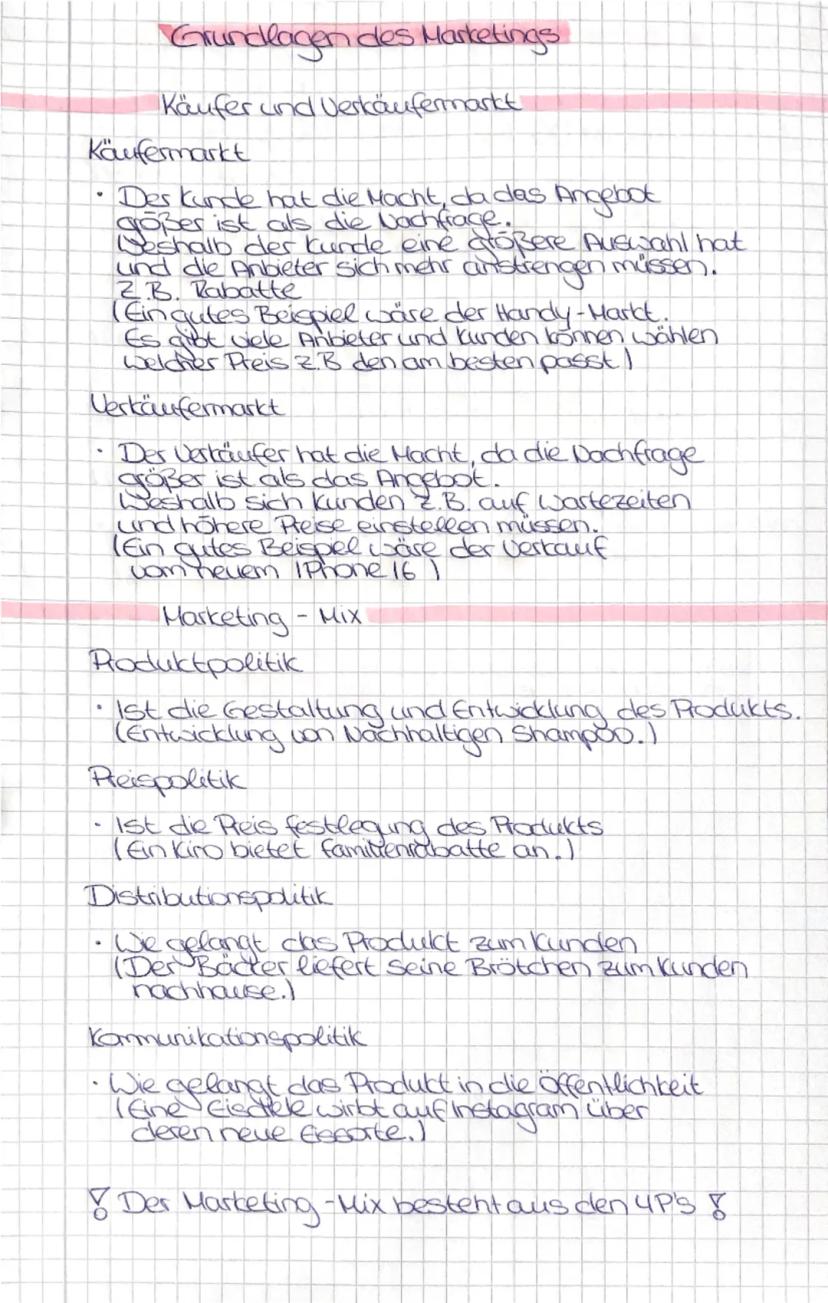 Grundlagen des Marketings
Käufer und Verkäufermarkt
Käufermarkt
· Der Kunde hat die Macht, da das Angebot
größer ist als die Nachfrage.
Weshalb der Kunde eine größere Auswahl hat
und die Anbieter sich mehr anstrengen müssen.
Z.B. Rabatte
(Ein gutes Beispiel wäre der Handy-Markt.
Es gibt viele Anbieter und Kunden können wählen
welcher Preis z.B den am besten passt)
Verkäufermarkt
· Der Verkäufer hat die Macht, da die Nachfrage
größer ist als das Angebot.
Weshalb sich Kunden z.B. auf Wartezeiten
und höhere Preise einstellen müssen.
(Ein gutes Beispiel wäre der Verkauf
vom neuem IPhone 16)
Marketing - Mix
Produktpolitik
· Ist die Gestaltung und Entwicklung des Produkts.
(Entwicklung von Nachhaltigen Shampoo.)
Preispolitik
· Ist die Preis festlegung des Produkts
(Ein Kino bietet familienrabatte an.)
Distributionspolitik
· Wie gelangt das Produkt zum Kunden
(Der Bäcker liefert seine Brötchen zum Kunden
nachhause.)
Kommunikationspolitik
· Wie gelangt das Produkt in die Öffentlichkeit
(Eine Eisdiele wirbt auf Instagram über
deren neue Eissorte.)
! Der Marketing-Mix besteht aus den 4P's !